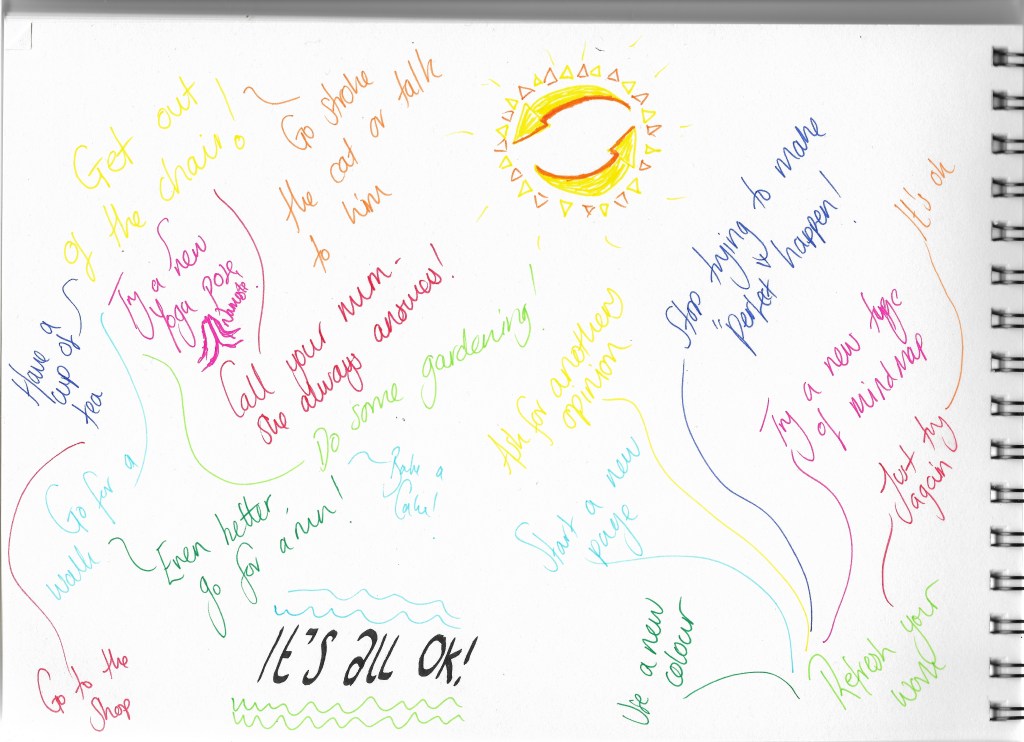 Get out
of the chair!
Go stroke
the cat or talk
to him
Try a new
Yoga pose
Namaste!
Have a
cup of
tea
Call your mum-
she always answers!
Do some gardening!
Bake a
Cake!
Go for a
walk
Even better,
go for a run!
Go to the
Shop
IT'S ALL OK!
Stop trying to make
"perfect" happen!
It's ok
Ask for another
opinion
Try a new type
of mindmap
Just try
again
Start a new
page
Use a new
colour
Refresh your
work